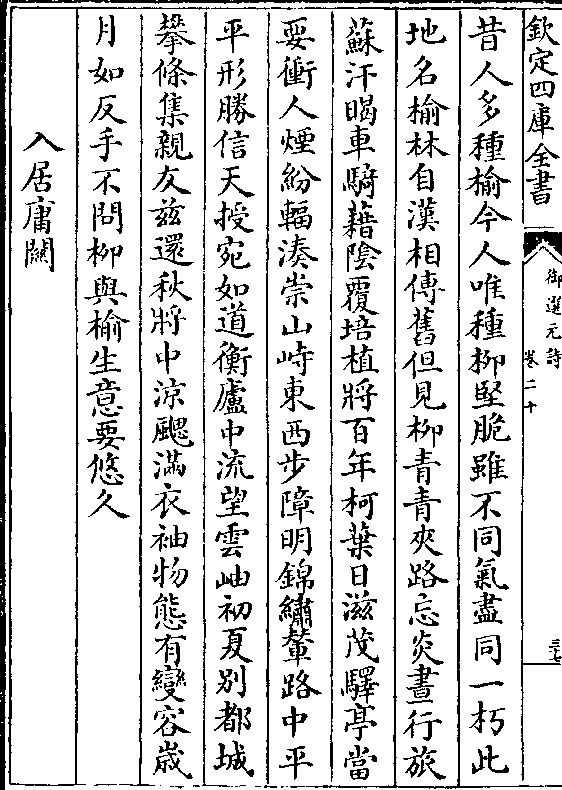 欽定四庫全書
御選元詩 卷二十
三七
昔人多種榆今人唯種柳堅脆雖不同氣盡同一朽此
地名榆林自漢相傳舊但見柳青青夾路忘炎晝行旅
蘇汗暍車騎藉陰覆培植將百年柯葉日滋茂驛亭當
要衝人煙紛輻湊崇山峙東西步障明錦繡輦路中平
平形勝信天授宛如道衡廬中流望雲岫初夏別都城
攀條集親友兹還秋將中涼颸滿衣袖物態有變容歳
月如反手不問柳與榆生意要悠久
入居庸關